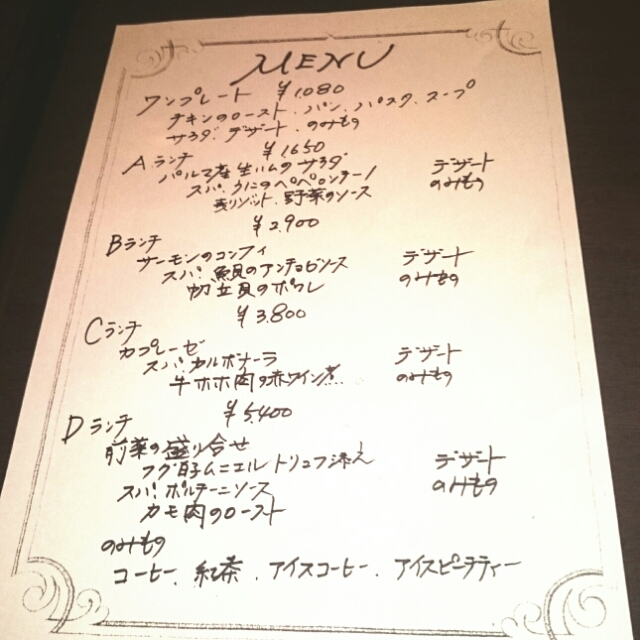 MENU
ワンプレート ¥1,080
チキンのロースト、パン、パスタ、スープ
サラダ、デザート、のみもの
¥1,650
Aランチ
パルマ産生ハムのサラダ デザート
スパ、うにのペペロンチーノ のみもの
麦リゾット、野菜のソース
¥2,900
Bランチ
サーモンのコンフィ デザート
スパ、鯛のアンチョビソース のみもの
帆立貝のポワレ
¥3,800
Cランチ
カプレーゼ デザート
スパ、カルボナーラ
牛ホホ肉の赤ワイン煮 のみもの
¥5,400
Dランチ
前菜の盛り合せ デザート
フグ白子ムニエル トリュフ添え
スパ、ポルチーニソース のみもの
カモ肉のロースト
のみもの
コーヒー、紅茶、アイスコーヒー、アイスピーチティー